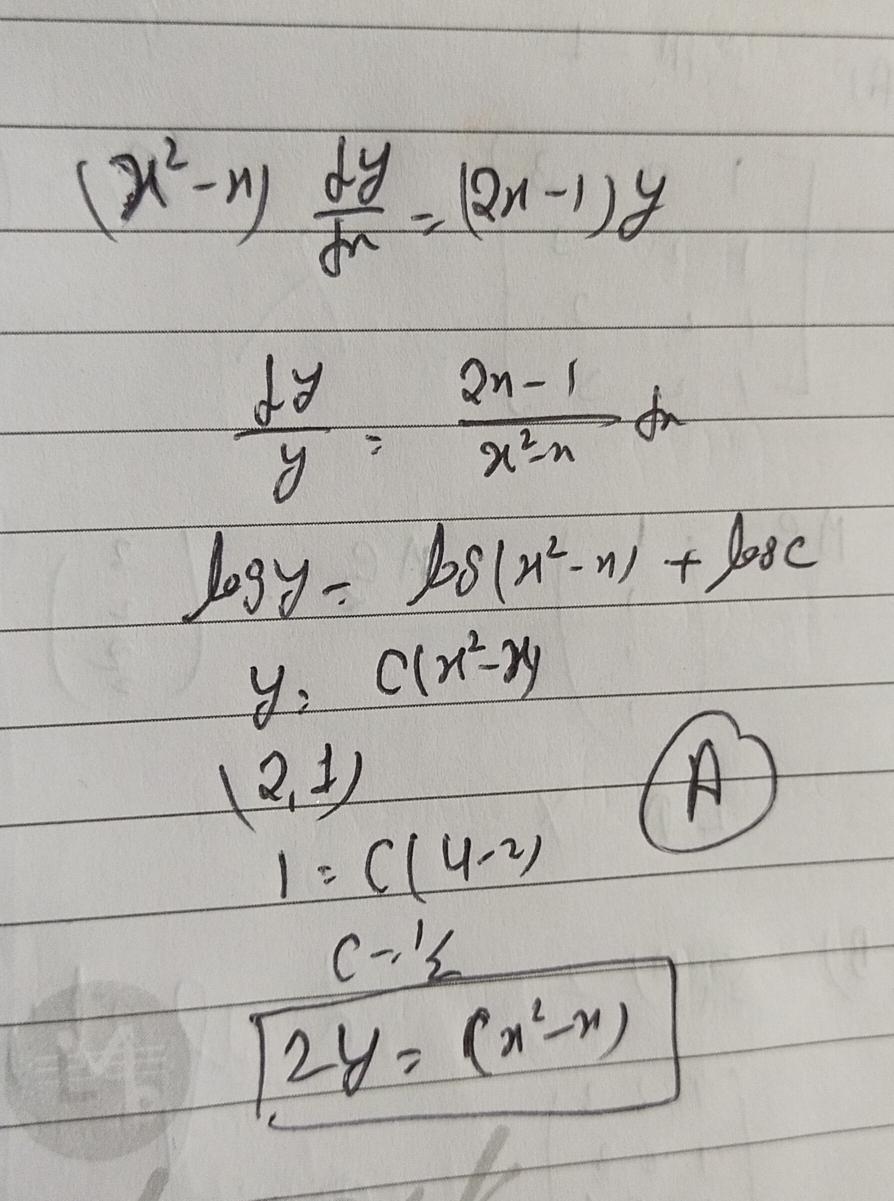 (x²-x) dy/dx = (2x-1)y
dy/y = 2x-1/x²-x dx
logy = log(x²-x) + logc
y = C(x²-x)
(2,1)
A
1 = C(4-2)
C = 1/2
2y = (x²-x)